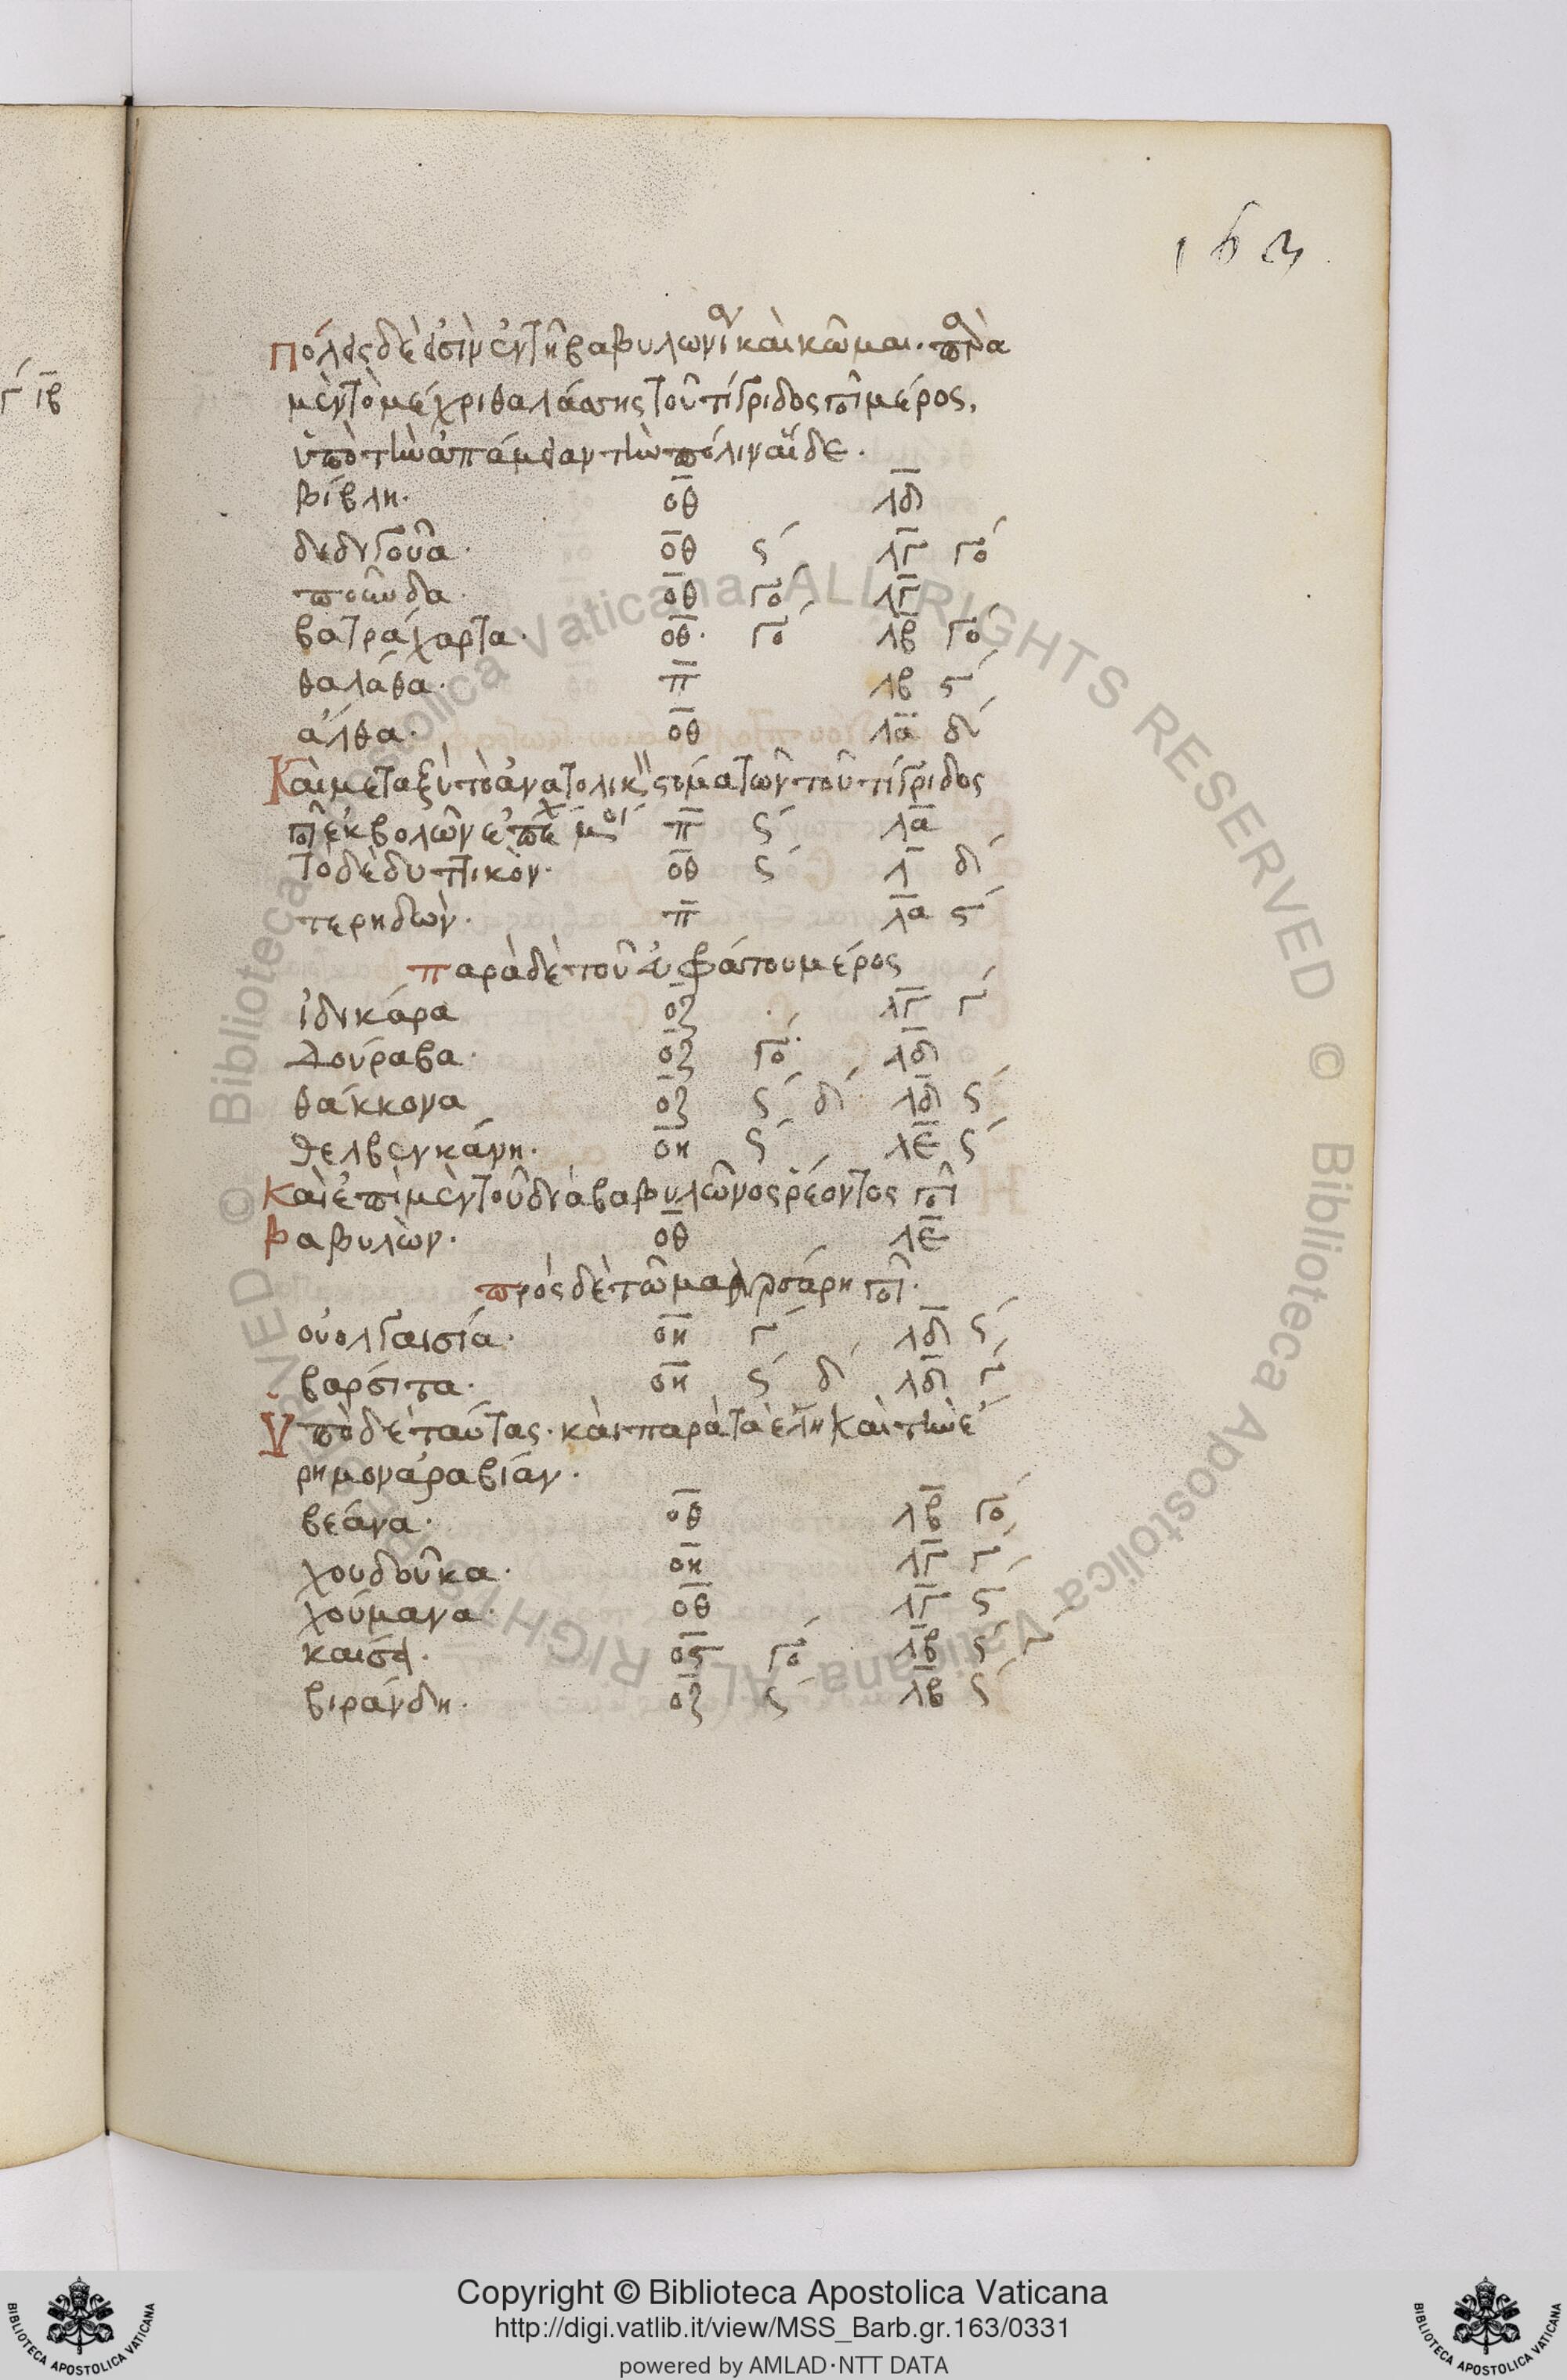 163
πόλεις δὲ εἰσὶν ἐν τῆ βαβυλωνία καὶ κῶμαι. παρὰ
μὲν τὸ μέχρι θαλάσσης τοῦ τίγριδος ποταμοῦ μέρος,
ὑπὸ τὴν ἀπάμειαν τὴν πόλιν αἵδε.
βίβλη. οθ λδ
διδιγούα. οθ ς´ λγ γο´
ποῦνδα. οθ γο´ λγ
βατράχαρτα. οθ. γο´ λβ γο´
θαλάθα. π λβ ς´
ἄλθα. οθ λα δ´
Καὶ μεταξὺ τὸ ἀνατολικ" στόμα τῶν τοῦ τίγριδος
ποταμοῦ ἐκβολῶν ἐπέχει μοί π ς´ λα
τὸ δὲ δυτικόν. οθ ς´ λ δ´
τερηδών. π λα ς´
παρὰ δὲ τοῦ εὐφράτου μέρος
ἰδικάρα οζ λγ γ´
Δούραβα. οζ γο´ λδ
θάκκονα οζ ς´ δ´ λδ ς´
θελβενκάνη. οη ς´ λε ς´
Καὶ ἐπὶ μὲν τοῦ διὰ βαβυλῶνος ῥέοντος ποταμοῦ
βαβυλών. οθ λε
πρὸς δὲ τῶ μααρσάρη ποταμῶ.
οὐολγαισία. οη γ´ λδ ς´
βαρσιτα. οη ς´ δ´ λδ γ´
Ὑπὸ δὲ ταύτας. καὶ παρὰ τὰ ἕλη καὶ τὴν ἐ
ρημον ἀραβίαν.
βεάνα. οθ λβ γο´
χουδοῦκα. οη λγ γ´
χούμανα. οθ λγ ς´
καισα. ος γο´ λβ ς´ γ´
βιράνδη. οζ ς´ λβ ς´
γ´ ιβ
© Biblioteca Apostolica Vaticana ALL RIGHTS RESERVED © Biblioteca Apostolica Vaticana ALL RIGHTS RESERVED
Copyright © Biblioteca Apostolica Vaticana
http://digi.vatlib.it/view/MSS_Barb.gr.163/0331
powered by AMLAD·NTT DATA
BIBLIOTECA APOSTOLICA VATICANA
BIBLIOTECA APOSTOLICA VATICANA